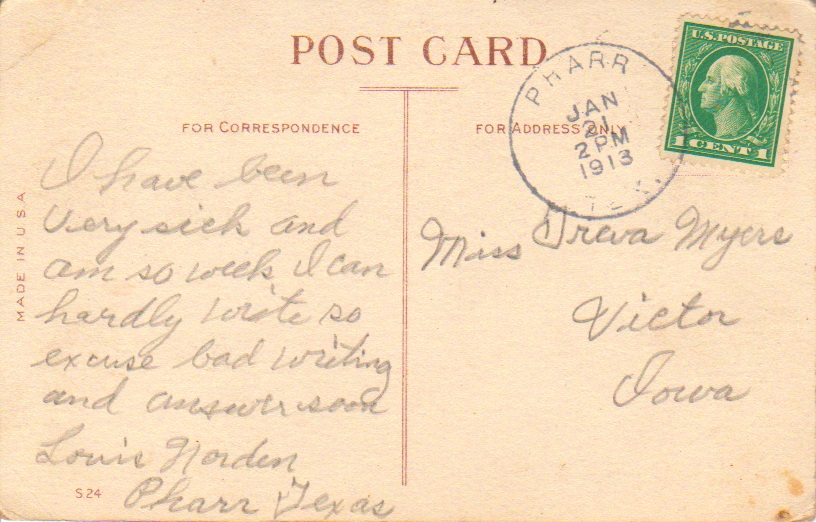 POST CARD
FOR CORRESPONDENCE
FOR ADDRESS ONLY
U.S. POSTAGE
1 CENT 1
PHARR
JAN
21
2 PM
1913
TEX.
MADE IN U.S.A
I have been
very sick and
am so week I can
hardly write so
excuse bad writing
and answer soon
Louis Norden
Pharr Texas
S24
Miss Treva Myers
Victor
Iowa